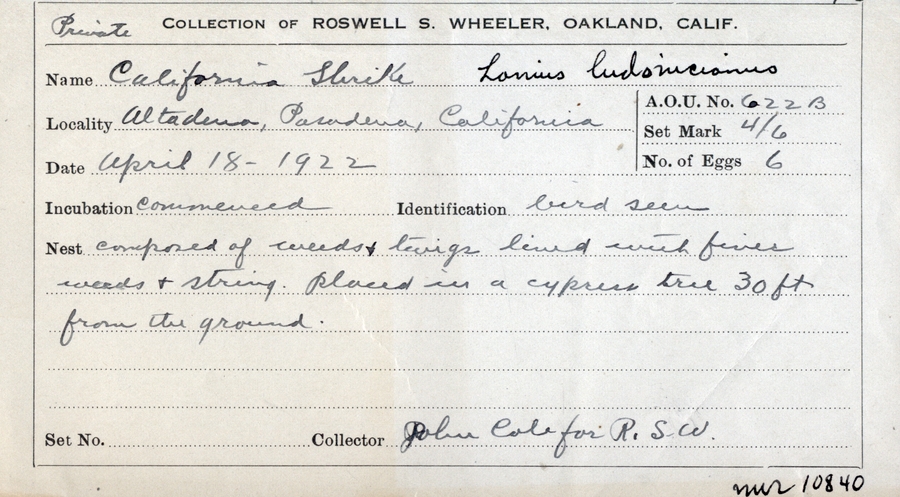 Private COLLECTION OF ROSWELL S. WHEELER, OAKLAND, CALIF.
Name California Shrike Lanius ludovicianus
Locality Altadena, Pasadena, California
A.O.U. No. 622 B
Set Mark 4/6
Date April 18 - 1922
No. of Eggs 6
Incubation commenced Identification bird seen
Nest composed of weeds & twigs lined with finer
weeds & string. Placed in a cypress tree 30 ft
from the ground.
Set No. Collector John Cole for R. S. W.
10840